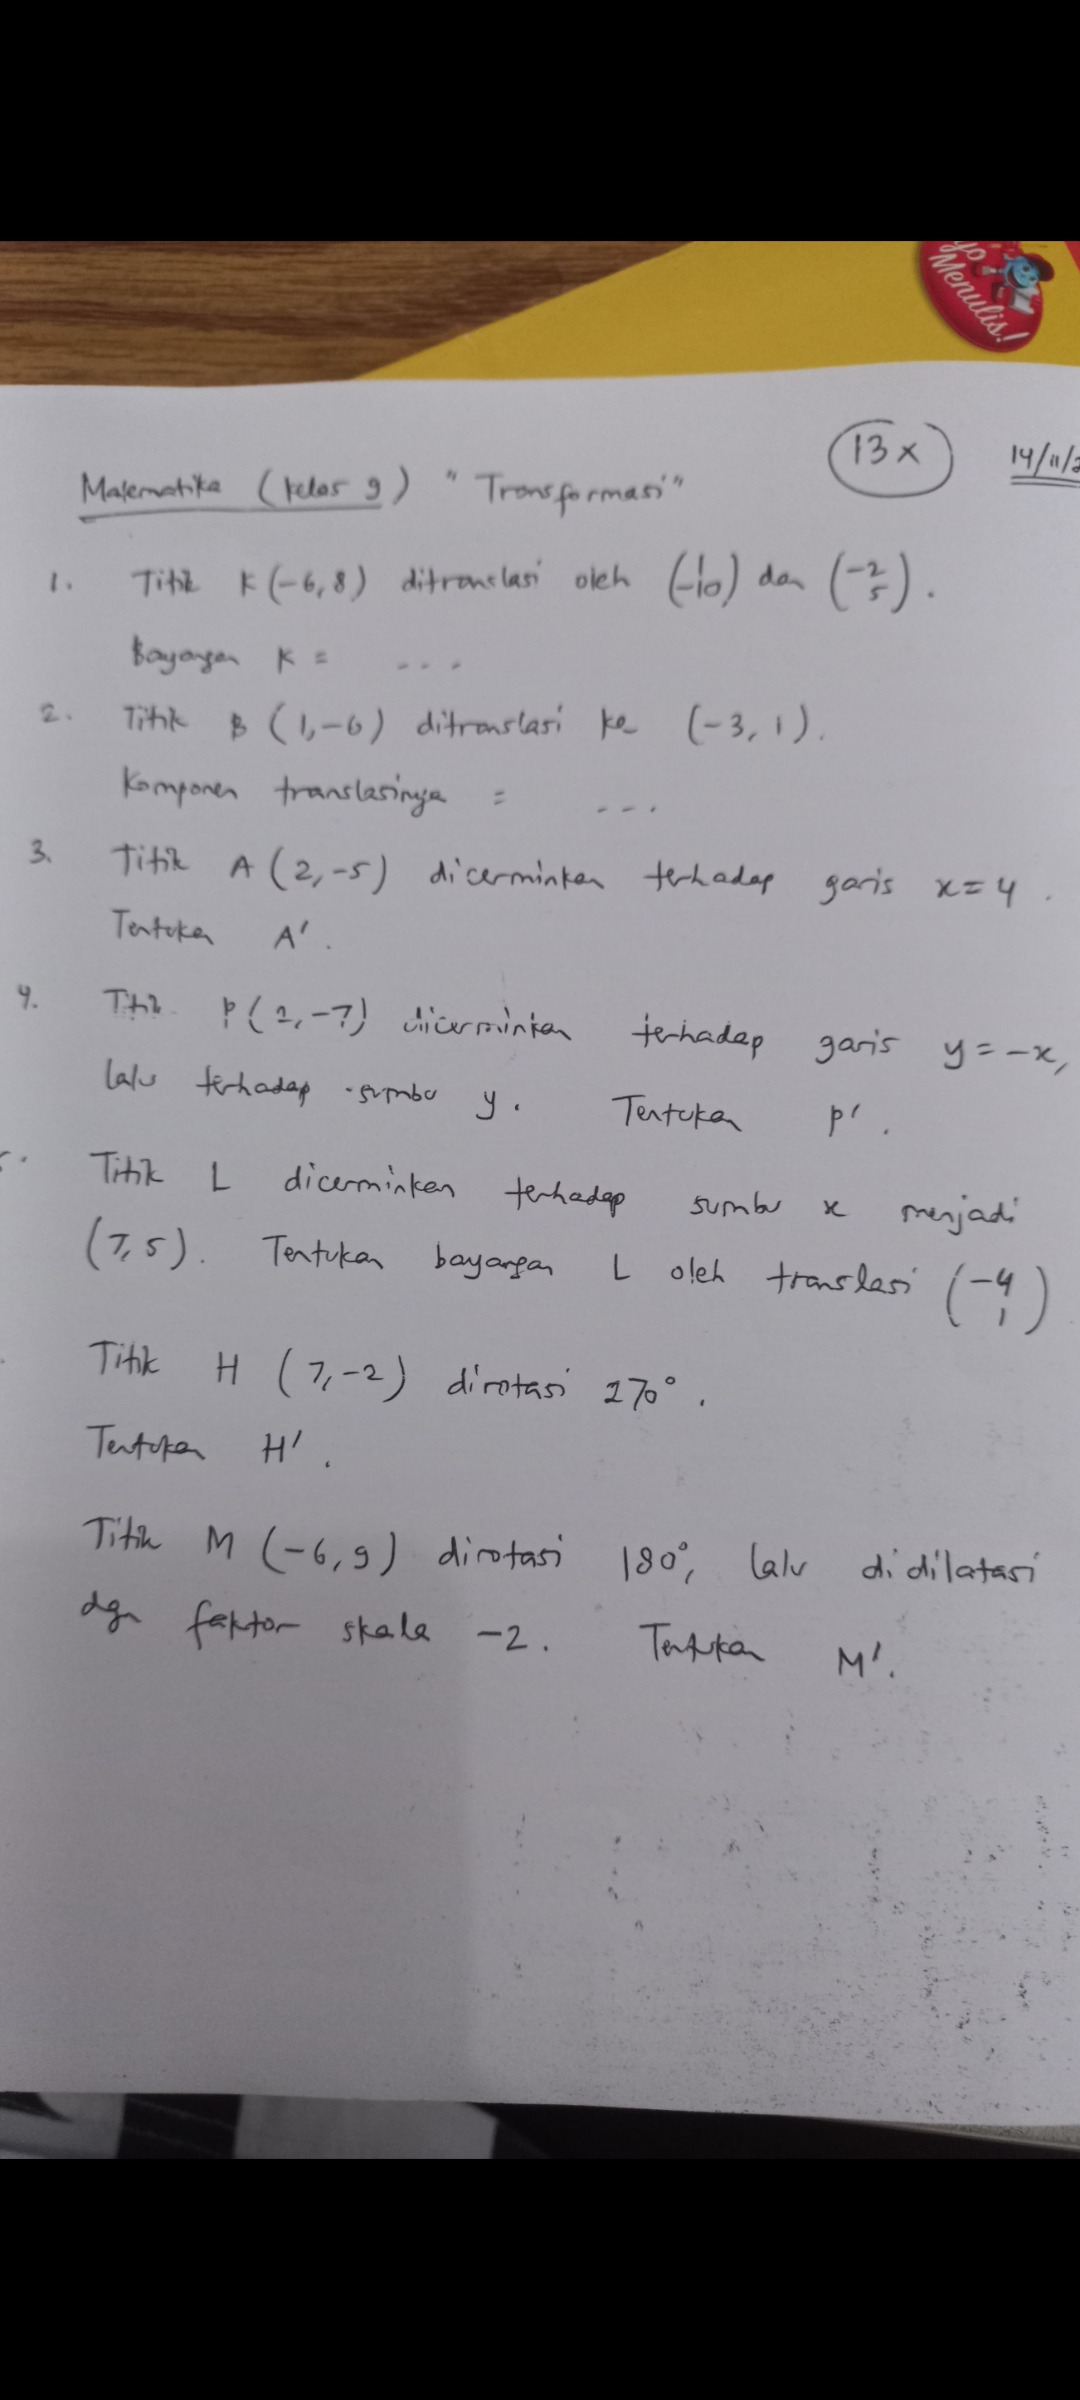 yo
Menulis!
13x
14/11/2
Matematika (kelas 9) "Transformasi"
1. Titik K(-6,8) ditranslasi oleh (1 -10) dan (-2 5).
Bayangan K = ...
2. Titik B (1,-6) ditranslasi ke (-3, 1).
Komponen translasinya = ...
3. Titik A (2,-5) dicerminkan terhadap garis x=4.
Tentukan A'.
4. Titik P(2,-7) dicerminkan terhadap garis y = -x,
lalu terhadap sumbu y. Tentukan P'.
Titik L dicerminkan terhadap sumbu x menjadi
(7,5). Tentukan bayangan L oleh translasi (-4 1)
Titik H (7,-2) dirotasi 270°.
Tentukan H'.
Titik M (-6,9) dirotasi 180°, lalu didilatasi
dgn faktor skala -2. Tentukan M'.